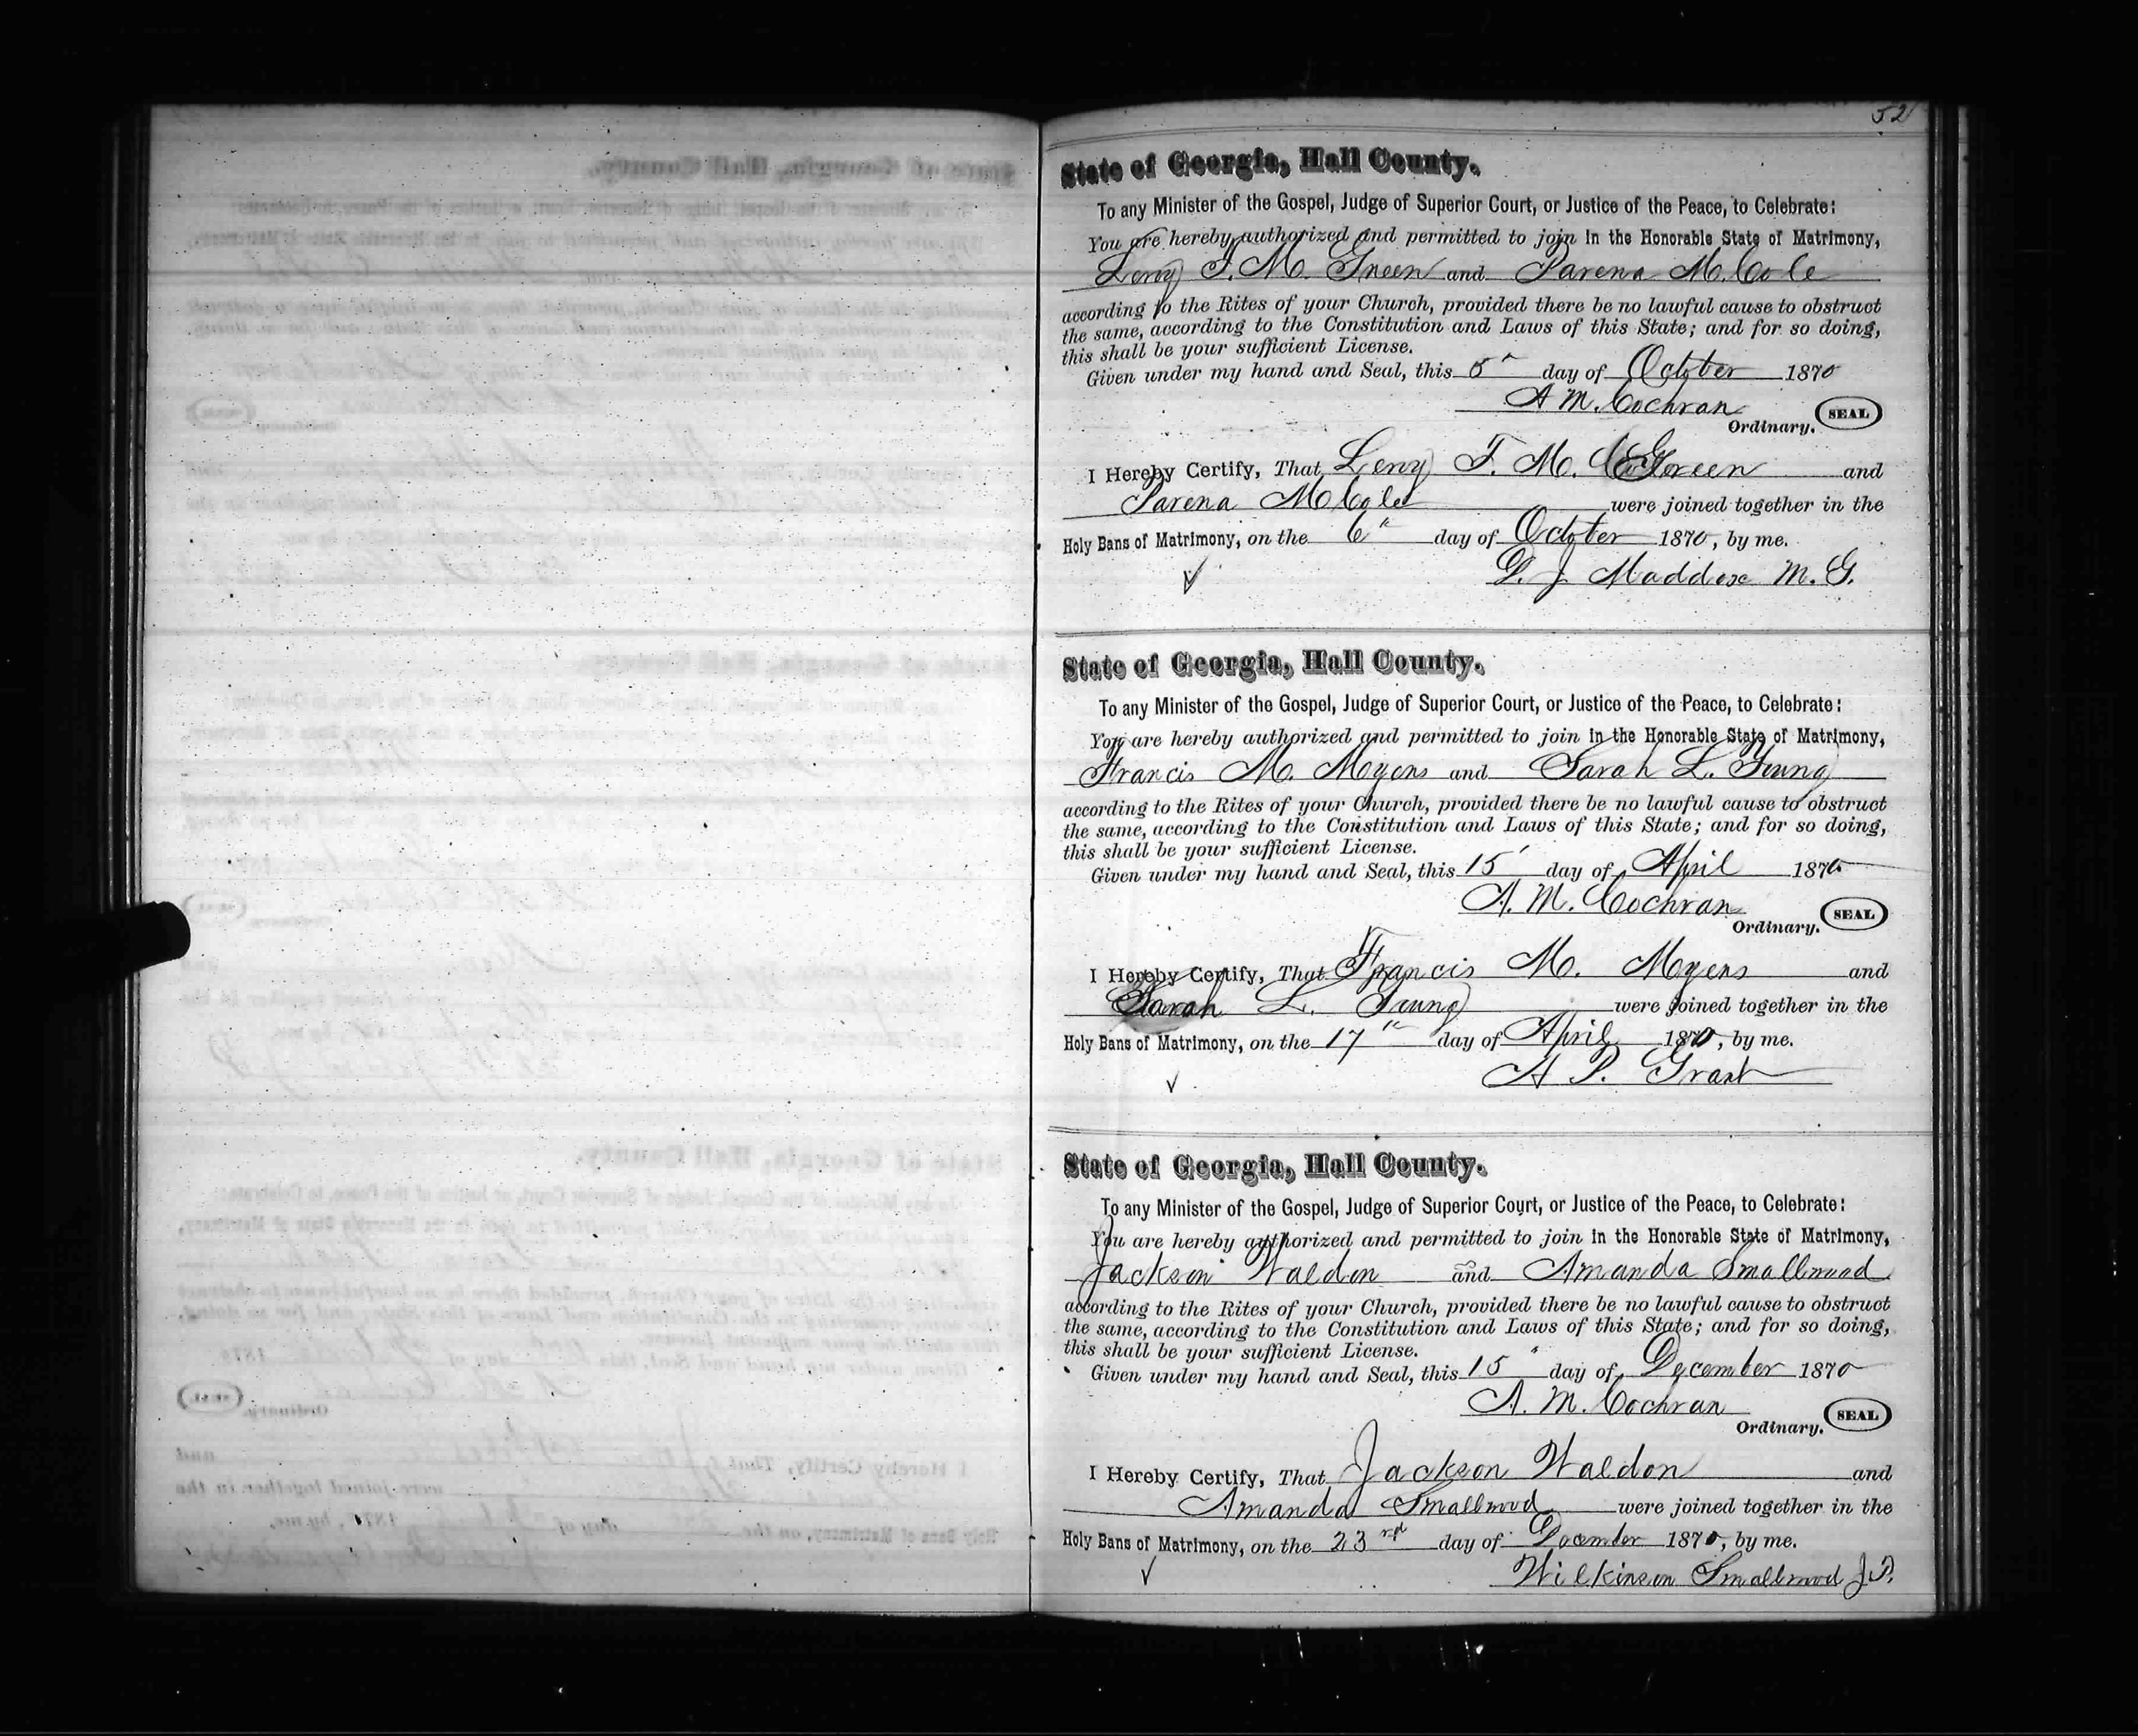 52
State of Georgia, Hall County.
To any Minister of the Gospel, Judge of Superior Court, or Justice of the Peace, to Celebrate:
You are hereby authorized and permitted to join in the Honorable State of Matrimony,
Leroy T. M. Green and Parena M. Cole
according to the Rites of your Church, provided there be no lawful cause to obstruct
the same, according to the Constitution and Laws of this State; and for so doing,
this shall be your sufficient License.
Given under my hand and Seal, this 5th day of October 1870
A M. Cochran
Ordinary. SEAL
I Hereby Certify, That Leroy T. M. Green and
Parena M Cole were joined together in the
Holy Bans of Matrimony, on the 6th day of October 1870, by me.
J. Maddox M. G.
State of Georgia, Hall County.
To any Minister of the Gospel, Judge of Superior Court, or Justice of the Peace, to Celebrate:
You are hereby authorized and permitted to join in the Honorable State of Matrimony,
Francis M. Myers and Sarah L. Young
according to the Rites of your Church, provided there be no lawful cause to obstruct
the same, according to the Constitution and Laws of this State; and for so doing,
this shall be your sufficient License.
Given under my hand and Seal, this 15 day of April 1870
A. M. Cochran
Ordinary. SEAL
I Hereby Certify, That Francis M. Myers and
Sarah L. Young were joined together in the
Holy Bans of Matrimony, on the 17th day of April 1870, by me.
A P. Grant
State of Georgia, Hall County.
To any Minister of the Gospel, Judge of Superior Court, or Justice of the Peace, to Celebrate:
You are hereby authorized and permitted to join in the Honorable State of Matrimony,
Jackson Waldon and Amanda Smallwood
according to the Rites of your Church, provided there be no lawful cause to obstruct
the same, according to the Constitution and Laws of this State; and for so doing,
this shall be your sufficient License.
Given under my hand and Seal, this 15 day of December 1870
A. M. Cochran
Ordinary. SEAL
I Hereby Certify, That Jackson Waldon and
Amanda Smallwood were joined together in the
Holy Bans of Matrimony, on the 23rd day of December 1870, by me.
Wilkinson Smallwood J.P.